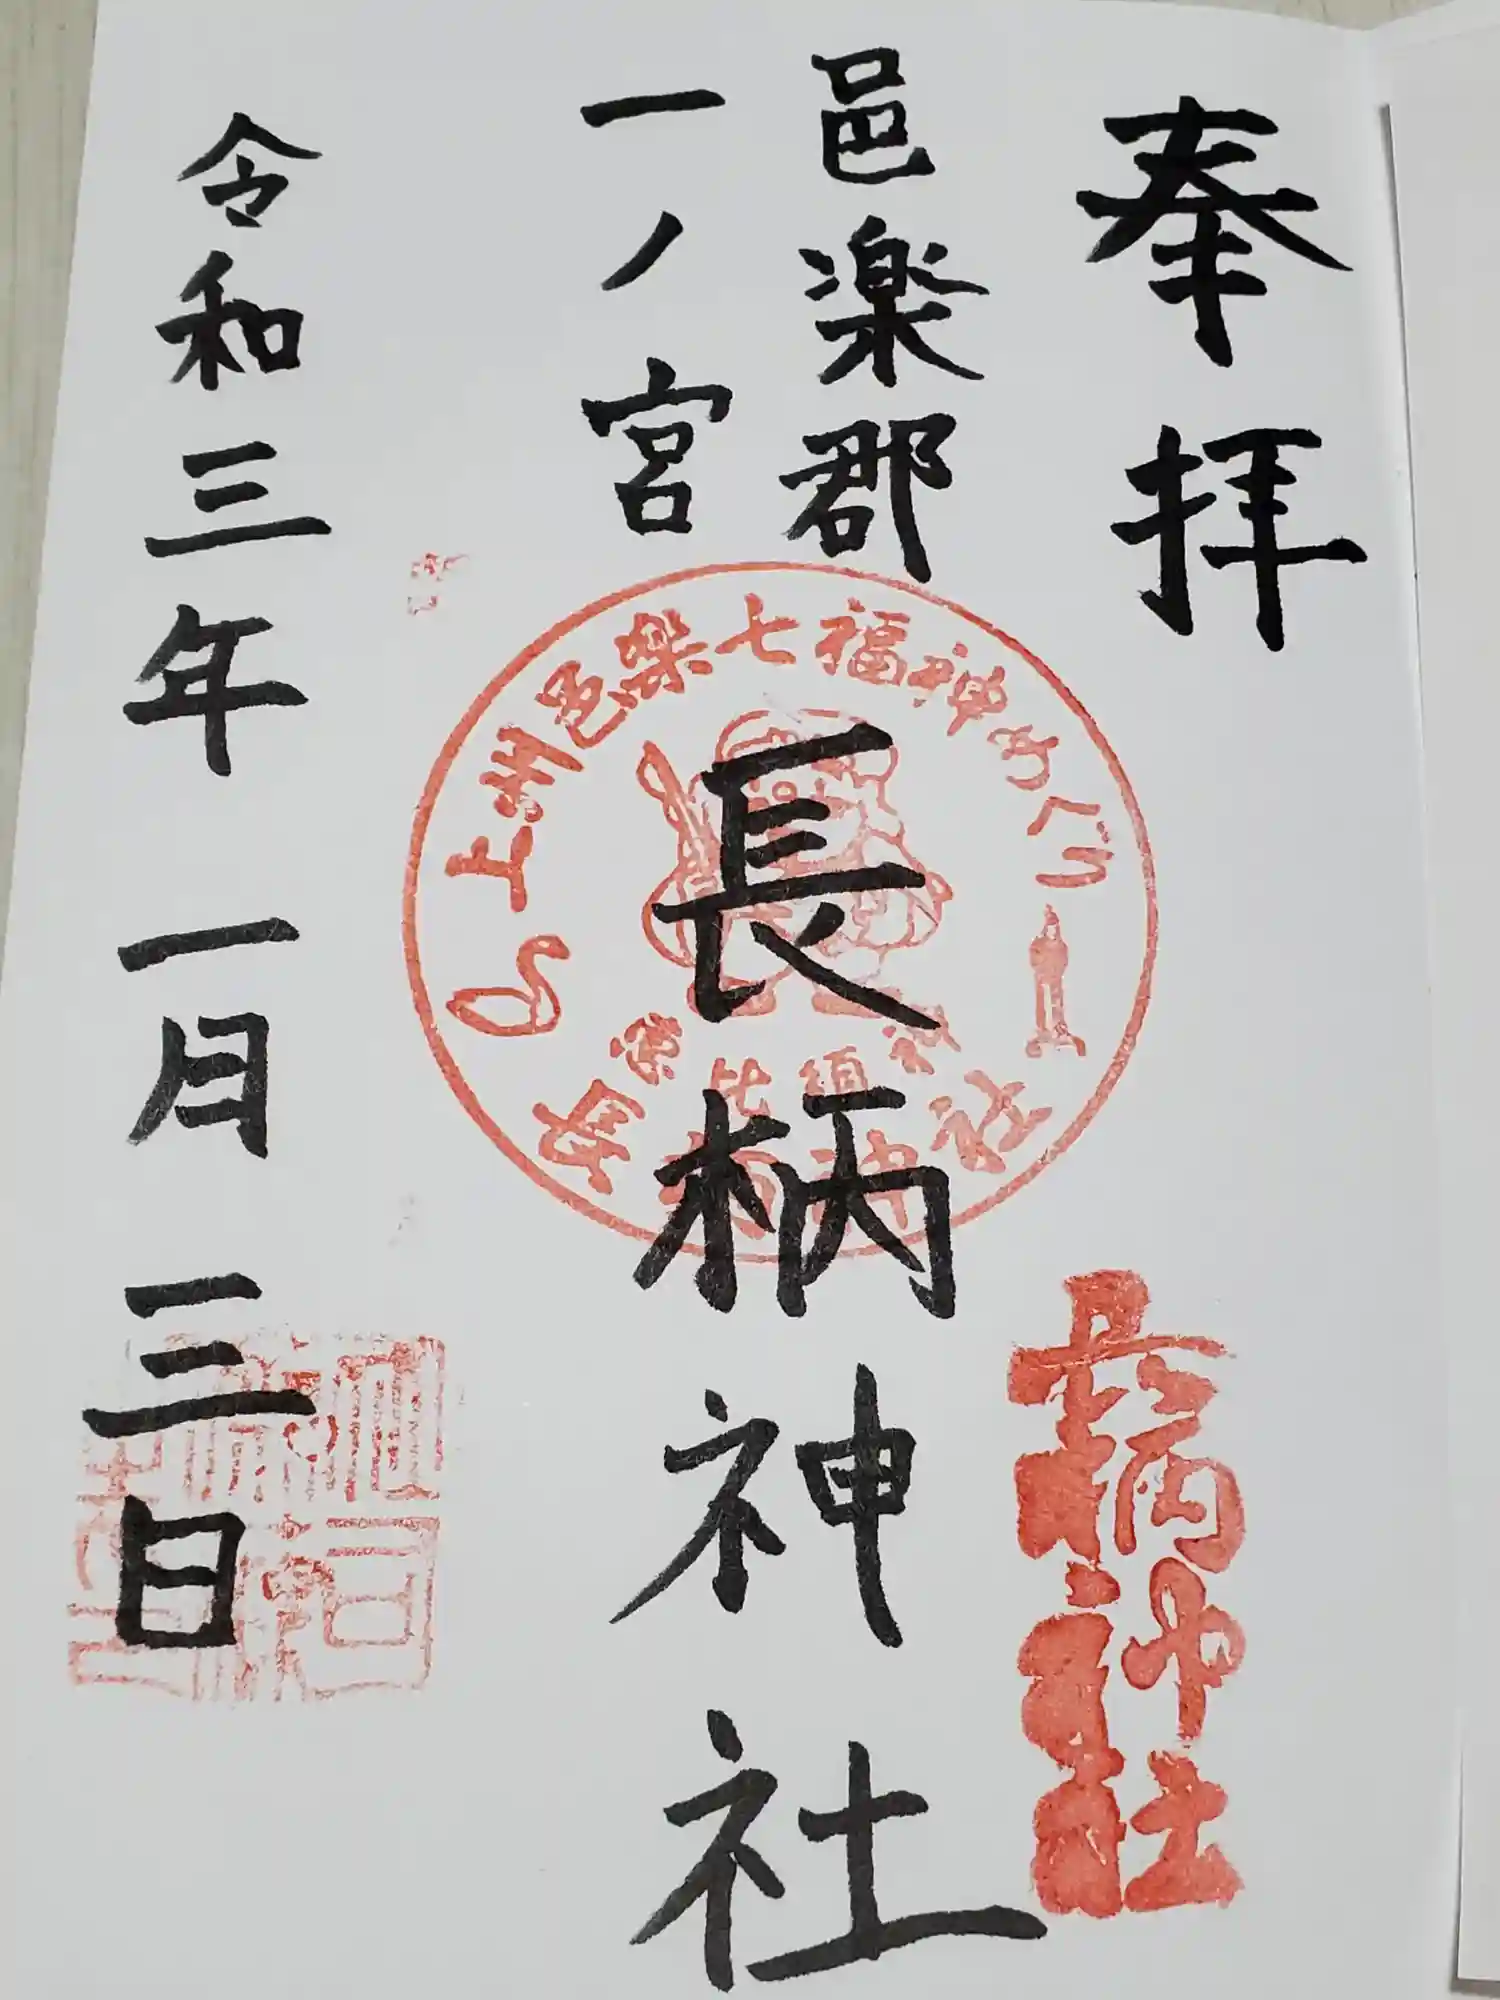 奉拝
邑楽郡
一ノ宮
長柄神社
令和三年一月三日
上州邑楽七福神めぐり
長柄神社